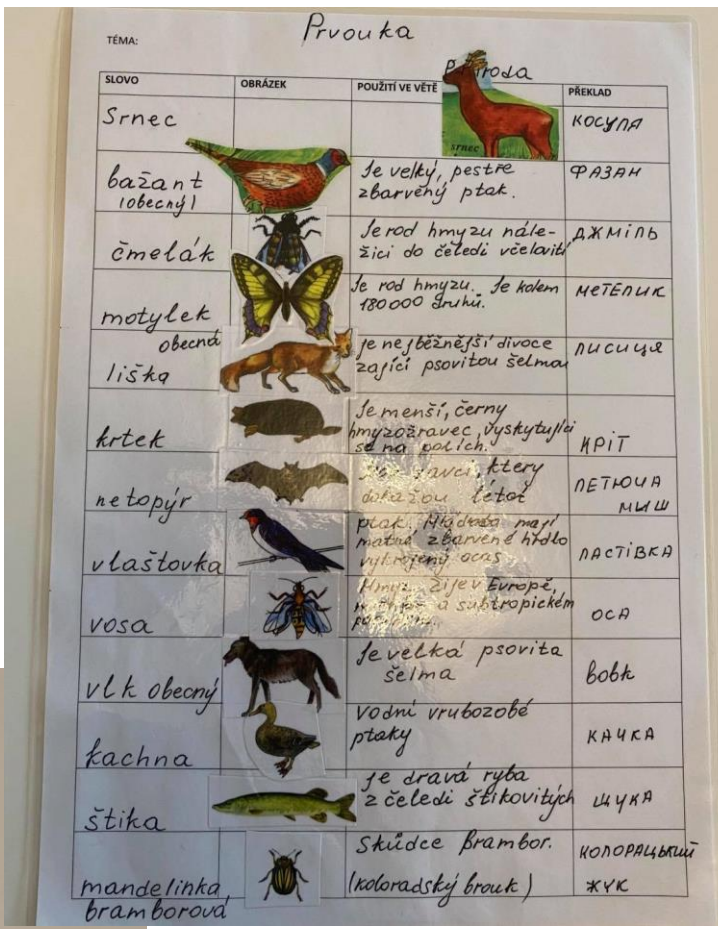 Prvouka
TÉMA:
Příroda
SLOVO OBRÁZEK POUŽITÍ VE VĚTĚ PŘEKLAD
Srnec
srnec
косуля
bažant
(obecný)
Je velký, pestře
zbarvěný ptak.
ФАЗАН
čmelák
Je rod hmyzu nále-
žici do čeledi včelovití
ДЖМіль
motylek
Je rod hmyzu. Je kolem
180000 druhů.
метелик
obecná
liška
je nejběžnější divoce
zající psovitou šelmou
лисиця
krtek
Je menší, černy
hmyzožravec, vyskytující
se na polích.
КРіТ
netopýr
savci, ktery
dokažou létat
ЛЕТЮЧА
МИШ
vlaštovka
ptak. mají
matně zbarvené hrdlo
vykrojený ocas
ЛАСТіВКА
vosa
Hmyz. Žije v Evropě,
a subtropickém
ОСА
vlk obecný
Je velká psovita
šelma
вовк
kachna
Vodní vrubozobé
ptaky
КАЧКА
štika
je dravá ryba
z čeledi štikovitých
щука
mandelinka
bramborová
Skůdce Brambor.
(koloradský brouk)
КОЛОРАЦЬКИЙ
ЖУК